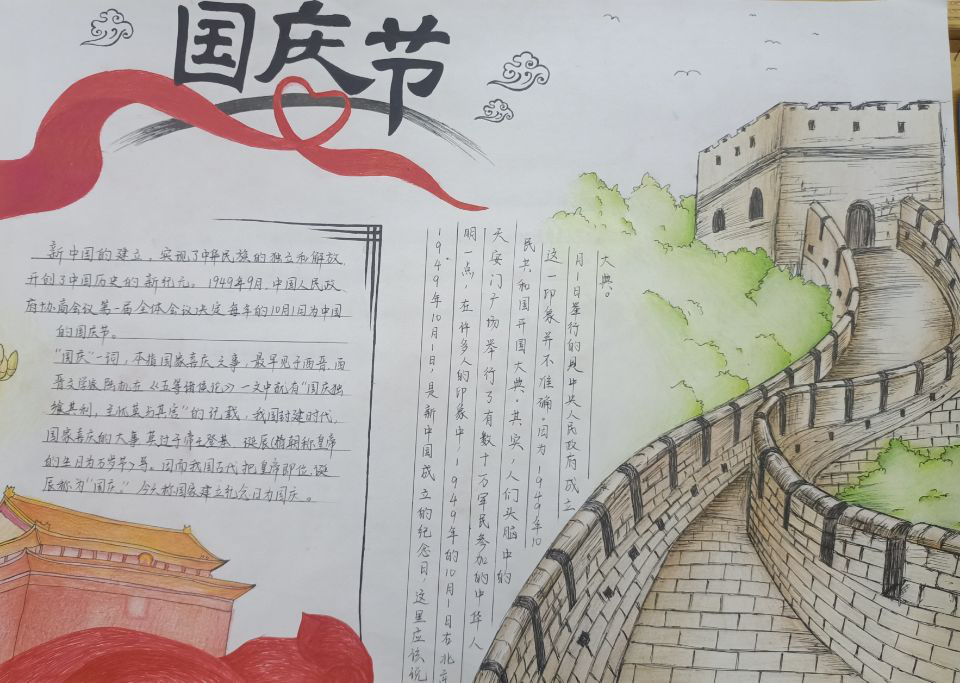 国庆节
新中国的建立，实现了中华民族的独立和解放，
开创了中国历史的新纪元。1949年9月，中国人民政
府协商会议第一届全体会议决定每年的10月1日为中国
的国庆节。
“国庆”一词，本指国家喜庆之事，最早见于西晋。西
晋文学家陆机在《五等诸侯论》一文中就有“国庆独
飨其利，主忧莫与其害”的记载，我国封建时代，
国家喜庆的大事莫过于帝王登基、诞辰（清朝称皇帝
的生日为万岁节）等。因而我国古代把皇帝即位、诞
辰称为“国庆”。今天称国家建立纪念日为国庆。
1949年10月1日，是新中国成立的纪念日，这里应该说
明一点，在许多人的印象中，1949年的10月1日在北京
天安门广场举行了有数十万军民参加的中华人
民共和国开国大典。其实，人们头脑中的
这一印象并不准确。因为1949年10
月1日举行的是中央人民政府成立
大典。